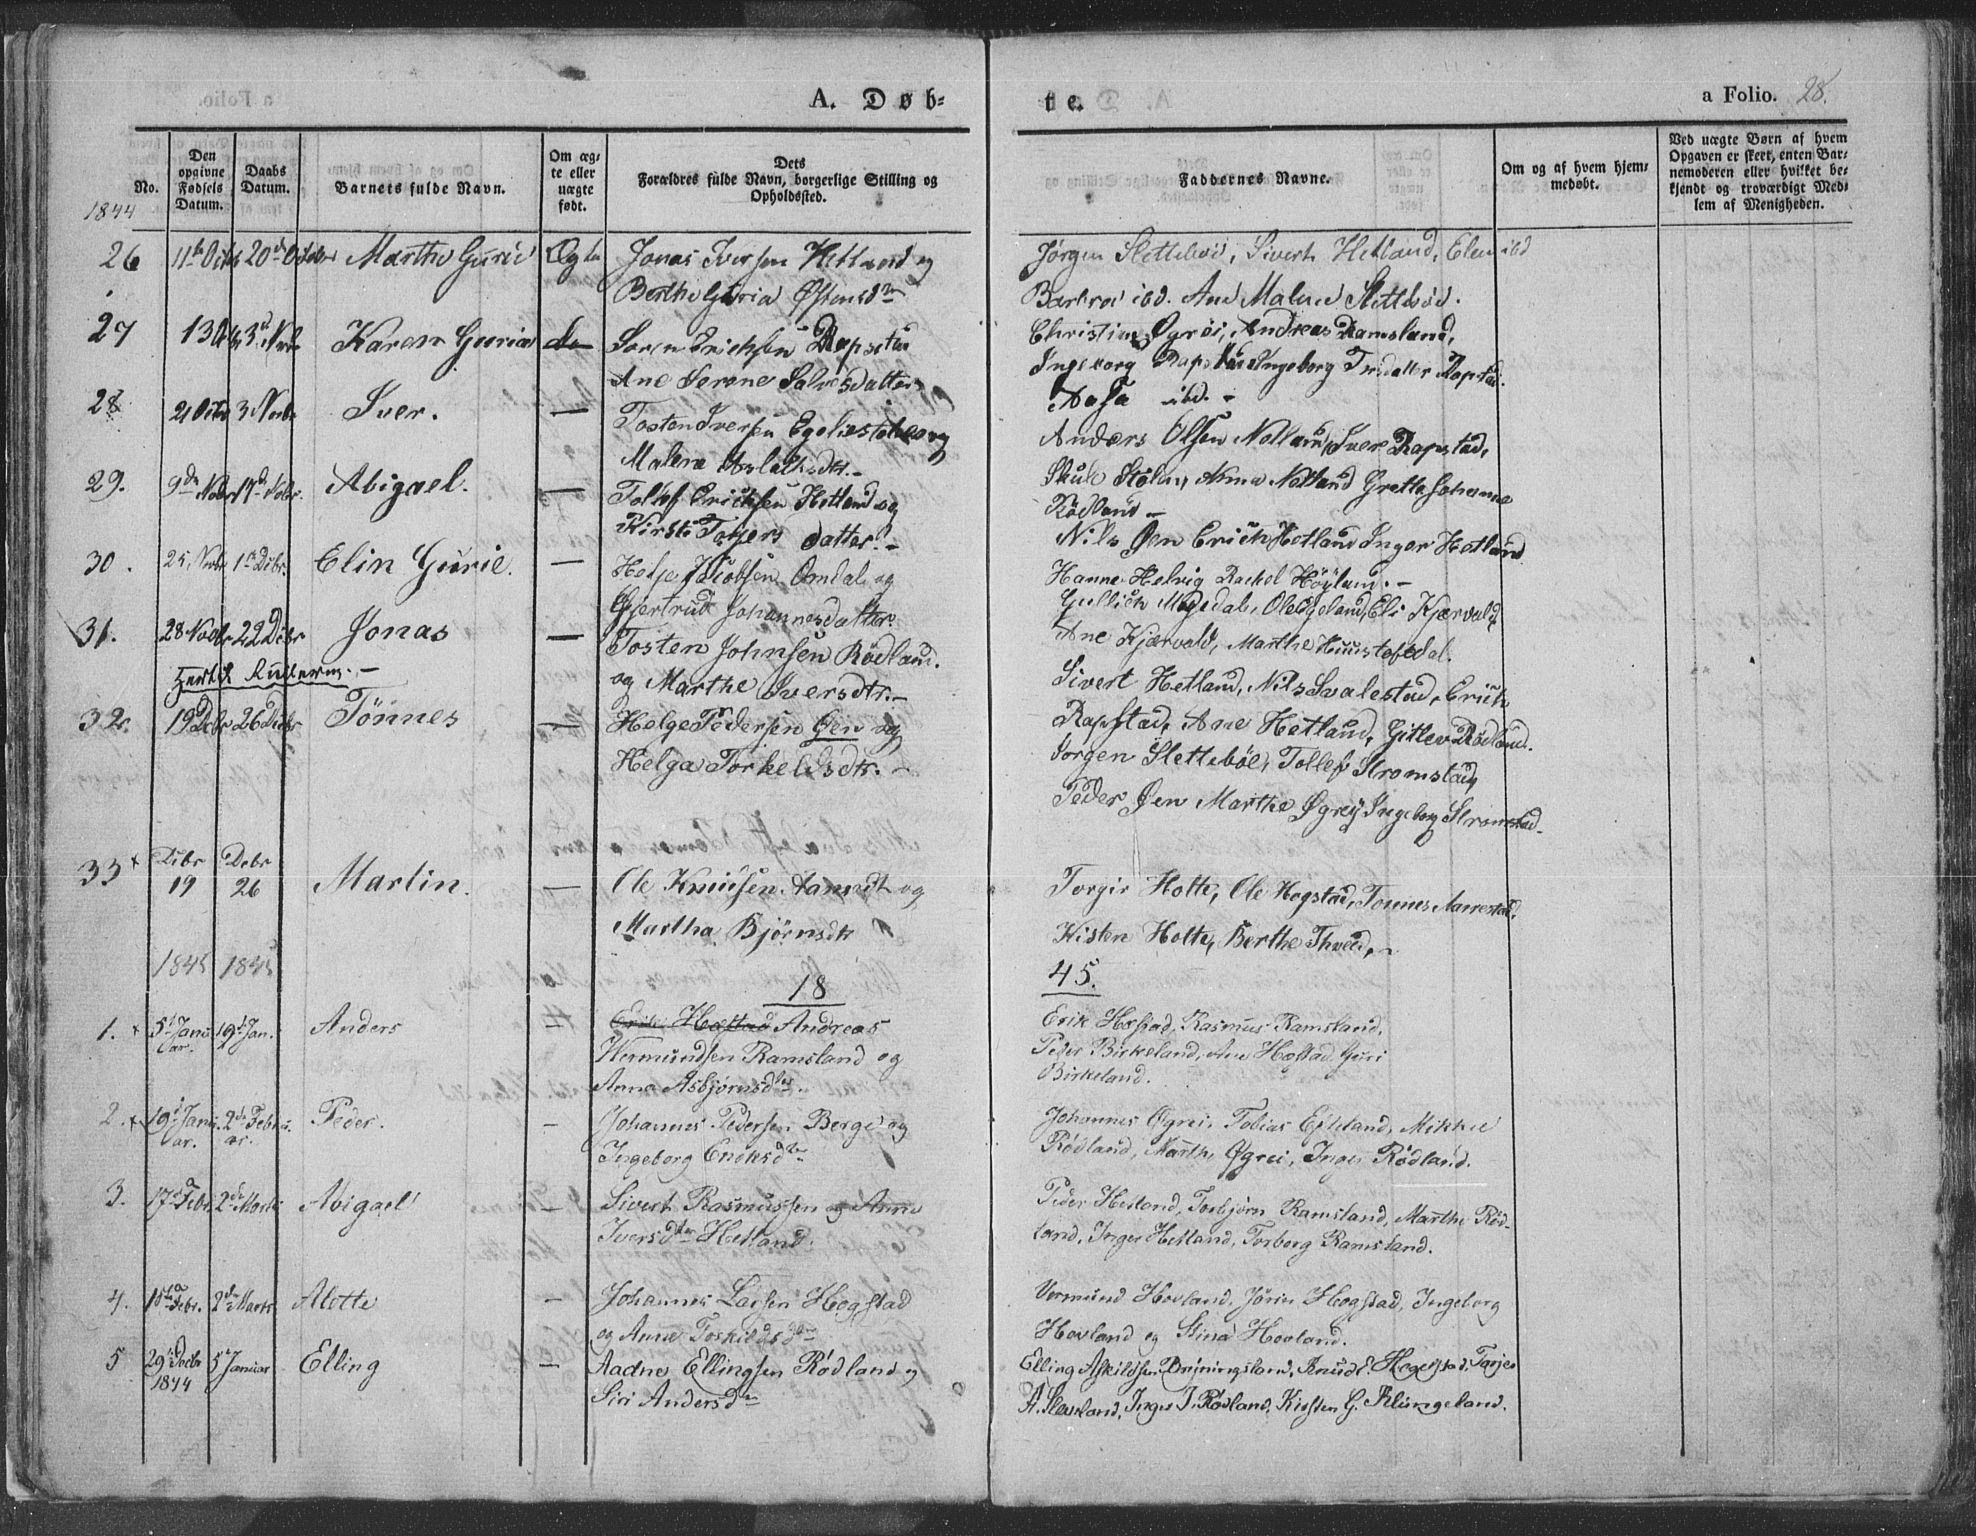 A. Døb-
te.
a Folio. 28.
No.
Den opgivne Fødsels Datum.
Daabs Datum.
Barnets fulde Navn.
Om ægte eller uægte født.
Dets Forældres fulde Navn, borgerlige Stilling og Opholdssted.
Faddernes Navne.
Om og af hvem hjemmedøbt.
Ved uægte Børn af hvem
Opgaven er skeet, enten Bar-
nemoderen eller hvilket be-
kjendt og troværdigt Med-
lem af Menigheden.
1844
26 11te Octbr 20de October Marthe Gurie Ægte Jonas Iversen Hetland og
Berthe Guria Østensdtr
Jørgen Slettebød, Sivert Hetland, Elen ibd
Barbroe ibd. Ane Malene Slettebød.
27 13 3d Novbr Karen Guria do Soren Erichsen Rapstad
Ane Serene Salvesdatter
Christian Øgrei, Andreas Ramsland,
Ingeborg Rapstad Ingeborg Rapstad
Aasa ibd. -
28 2 Octbr 3 Novbr Iver. — Tosten Iversen og
Malene Aslaksdtr. -
Anders Olsen Netland, Iver Rapstad,
Skule Anna Netland Grethe Johanne
Rødland -
29. 9de Novbr 17d Nobr. Abigael. — Tollef Erichsen Hetland og
Kirsti datter. -
Nils Øen Erich Hetland Inger Hetland
Hanne Helvig Rachel Høyland. -
30. 25 Novbr 1te Debr. Elin Gurie. — Helje Jacobsen Omdal og
Gjertrud Johannesdatter
Gullich Ole Eli Kjærvald,
Ane Kjærvald, Marthe
31. 28 Novbr 22 Debr Jonas — Tosten Johnsen Rødland.
og Marthe Iversdtr. -
Sivert Hetland, Nils Svalestad, Erich
Rapstad, Ane Hetland, Gitlev Rødland.
32. 19 Debr 26 Debr Tønnes — Helge Pedersen Øen og
Helga Torkelsdtr. -
Jorgen Slettebøe, Tollef Stromstad,
Peder Øen Marthe Øgrey Ingeborg Stromstad.
33 Debr 19 Debr 26 Martin. — Ole Knudsen og
Martha Bjørnsdtr
Torgir Holte, Ole Hogstad, Tonnes Aarrestad,
Kisten Holte, Berthe Thveid, -
1845 1845
18
45.
1. 5t Januar. 19d Jan. Anders Æ Andreas
Wermundsen Ramsland og
Anna Asbjørnsdtr.
Erik Hæstad, Rasmus Ramsland,
Peder Birkeland, Ane Hæstad Guri
Birkeland.
2. 19d Januar. 2de Februar. Peder. — Johannes Pedersen Berge og
Ingeborg Endresdtr
Johannes Øgrei, Tobias Efteland, Mikkel
Rødland, Marthe Øgrei, Inger Rødland.
3. 17d Febr. 2de Marts Abigael — Sivert Rasmussen og Anne
Iversdter Hetland.
Peder Hetland, Torbjørn Ramsland, Marthe Rød-
land, Inger Hetland, Torborg Ramsland.
4. 18de Febr. 2de Marts Alotte — Johannes Larsen Hogstad
og Anne Toskildsdtr
Vermund Hovland, Jørin Hogstad, Ingeborg
Hovland og Stina Hovland.
5 29de Decbr 1844 5t Januar Elling — Aadne Ellingsen Rødland og
Siri Andersdtr
Elling Askildsen Knud E. Hegelstad, Tarjer
A. Sleveland, Inger I. Rødland, Kirsten G. Klungeland.